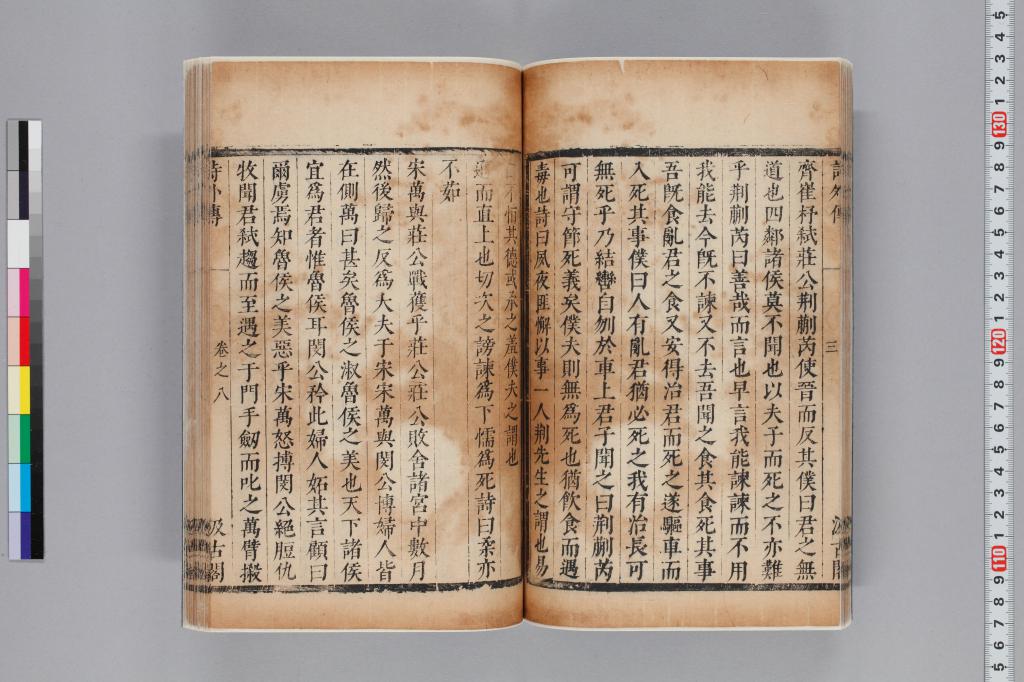 齊崔杼弑莊公荆蒯芮使晉而反其僕曰君之無
道也四鄰諸侯莫不聞也以夫子而死之不亦難
乎荆蒯芮曰善哉而言也早言我能諫諫而不用
我能去今旣不諫又不去吾聞之食其食死其事
吾旣食亂君之食又安得治君而死之遂驅車而
入死其事僕曰人有亂君猶必死之我有治長可
無死乎乃結轡自刎於車上君子聞之曰荆蒯芮
可謂守節死義矣僕夫則無爲死也猶飲食而遇
毒也詩曰夙夜匪懈以事一人荆先生之謂也易
曰不恒其德或承之羞僕夫之謂也
而直上也切次之謗諫爲下懦爲死詩曰柔亦
不茹
宋萬與莊公戰獲乎莊公莊公敗舍諸宮中數月
然後歸之反爲大夫于宋宋萬與閔公博婦人皆
在側萬曰甚矣魯侯之淑魯侯之美也天下諸侯
宜爲君者惟魯侯耳閔公矜此婦人妬其言顧曰
爾虜焉知魯侯之美惡乎宋萬怒搏閔公絕脰仇
牧聞君弑趨而至遇之于門手劒而叱之萬臂摋
詩外傳
卷之八
汲古閣
三